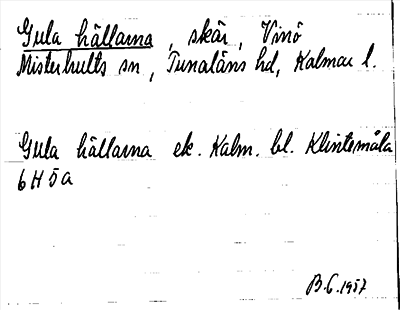 Gula hällarna, skär, Vinö
Misterhults sn, Tunaläns hd, Kalmar l.
Gula hällarna ek. Kalm. bl. Klintemåla
6 H 5 a
B.G. 1957